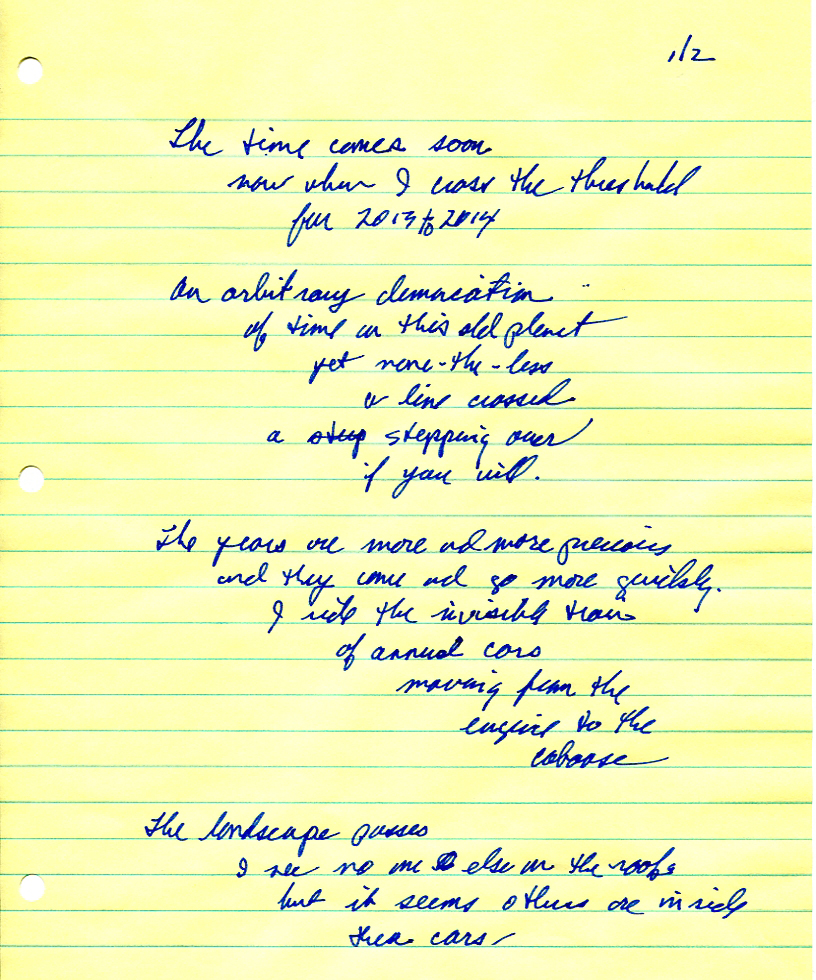 1/2
The time comes soon
now when I cross the threshold
from 2013 to 2014
An arbitrary demarcation
of time on this old planet
yet none-the-less
a line crossed
a step stepping over
if you will.
The years are more and more precious
and they come and go more quickly.
I ride the invisible train
of annual cars
moving from the
engine to the
caboose
The landscape passes
I see no one else on the roofs
but it seems others are inside
their cars